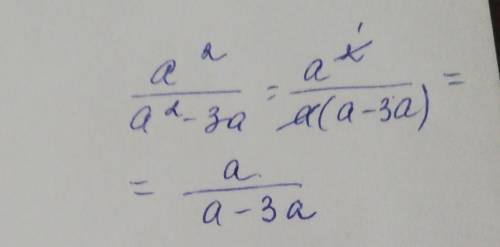 a² / (a² - 3a) = a²̸ ¹ / a̸(a - 3a) =
= a / (a - 3a)